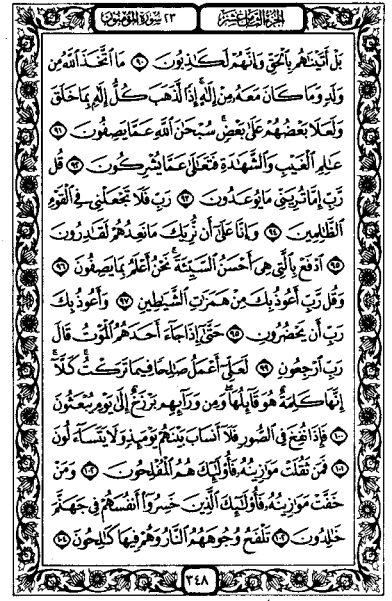 الجزء الثامن عشر ٢٣ سورة المؤمنون
بَلْ أَتَيْنَٰهُم بِٱلْحَقِّ وَإِنَّهُمْ لَكَٰذِبُونَ ٩٠ مَا ٱتَّخَذَ ٱللَّهُ مِن
وَلَدٍ وَمَا كَانَ مَعَهُۥ مِنْ إِلَٰهٍ ۚ إِذًا لَّذَهَبَ كُلُّ إِلَٰهٍۭ بِمَا خَلَقَ
وَلَعَلَا بَعْضُهُمْ عَلَىٰ بَعْضٍ ۚ سُبْحَٰنَ ٱللَّهِ عَمَّا يَصِفُونَ ٩١
عَٰلِمِ ٱلْغَيْبِ وَٱلشَّهَٰدَةِ فَتَعَٰلَىٰ عَمَّا يُشْرِكُونَ ٩٢ قُل
رَّبِّ إِمَّا تُرِيَنِّى مَا يُوعَدُونَ ٩٣ رَبِّ فَلَا تَجْعَلْنِى فِى ٱلْقَوْمِ
ٱلظَّٰلِمِينَ ٩٤ وَإِنَّا عَلَىٰٓ أَن نُّرِيَكَ مَا نَعِدُهُمْ لَقَٰدِرُونَ
٩٥ ٱدْفَعْ بِٱلَّتِى هِىَ أَحْسَنُ ٱلسَّيِّئَةَ ۚ نَحْنُ أَعْلَمُ بِمَا يَصِفُونَ ٩٦
وَقُل رَّبِّ أَعُوذُ بِكَ مِنْ هَمَزَٰتِ ٱلشَّيَٰطِينِ ٩٧ وَأَعُوذُ بِكَ
رَبِّ أَن يَحْضُرُونِ ٩٨ حَتَّىٰٓ إِذَا جَآءَ أَحَدَهُمُ ٱلْمَوْتُ قَالَ
رَبِّ ٱرْجِعُونِ ٩٩ لَعَلِّىٓ أَعْمَلُ صَٰلِحًا فِيمَا تَرَكْتُ ۚ كَلَّآ ۚ
إِنَّهَا كَلِمَةٌ هُوَ قَآئِلُهَا ۖ وَمِن وَرَآئِهِم بَرْزَخٌ إِلَىٰ يَوْمِ يُبْعَثُونَ
١٠٠ فَإِذَا نُفِخَ فِى ٱلصُّورِ فَلَآ أَنسَابَ بَيْنَهُمْ يَوْمَئِذٍ وَلَا يَتَسَآءَلُونَ
١٠١ فَمَن ثَقُلَتْ مَوَٰزِينُهُۥ فَأُو۟لَٰٓئِكَ هُمُ ٱلْمُفْلِحُونَ ١٠٢ وَمَنْ
خَفَّتْ مَوَٰزِينُهُۥ فَأُو۟لَٰٓئِكَ ٱلَّذِينَ خَسِرُوٓا۟ أَنفُسَهُمْ فِى جَهَنَّمَ
خَٰلِدُونَ ١٠٣ تَلْفَحُ وُجُوهَهُمُ ٱلنَّارُ وَهُمْ فِيهَا كَٰلِحُونَ ١٠٤
٣٤٨